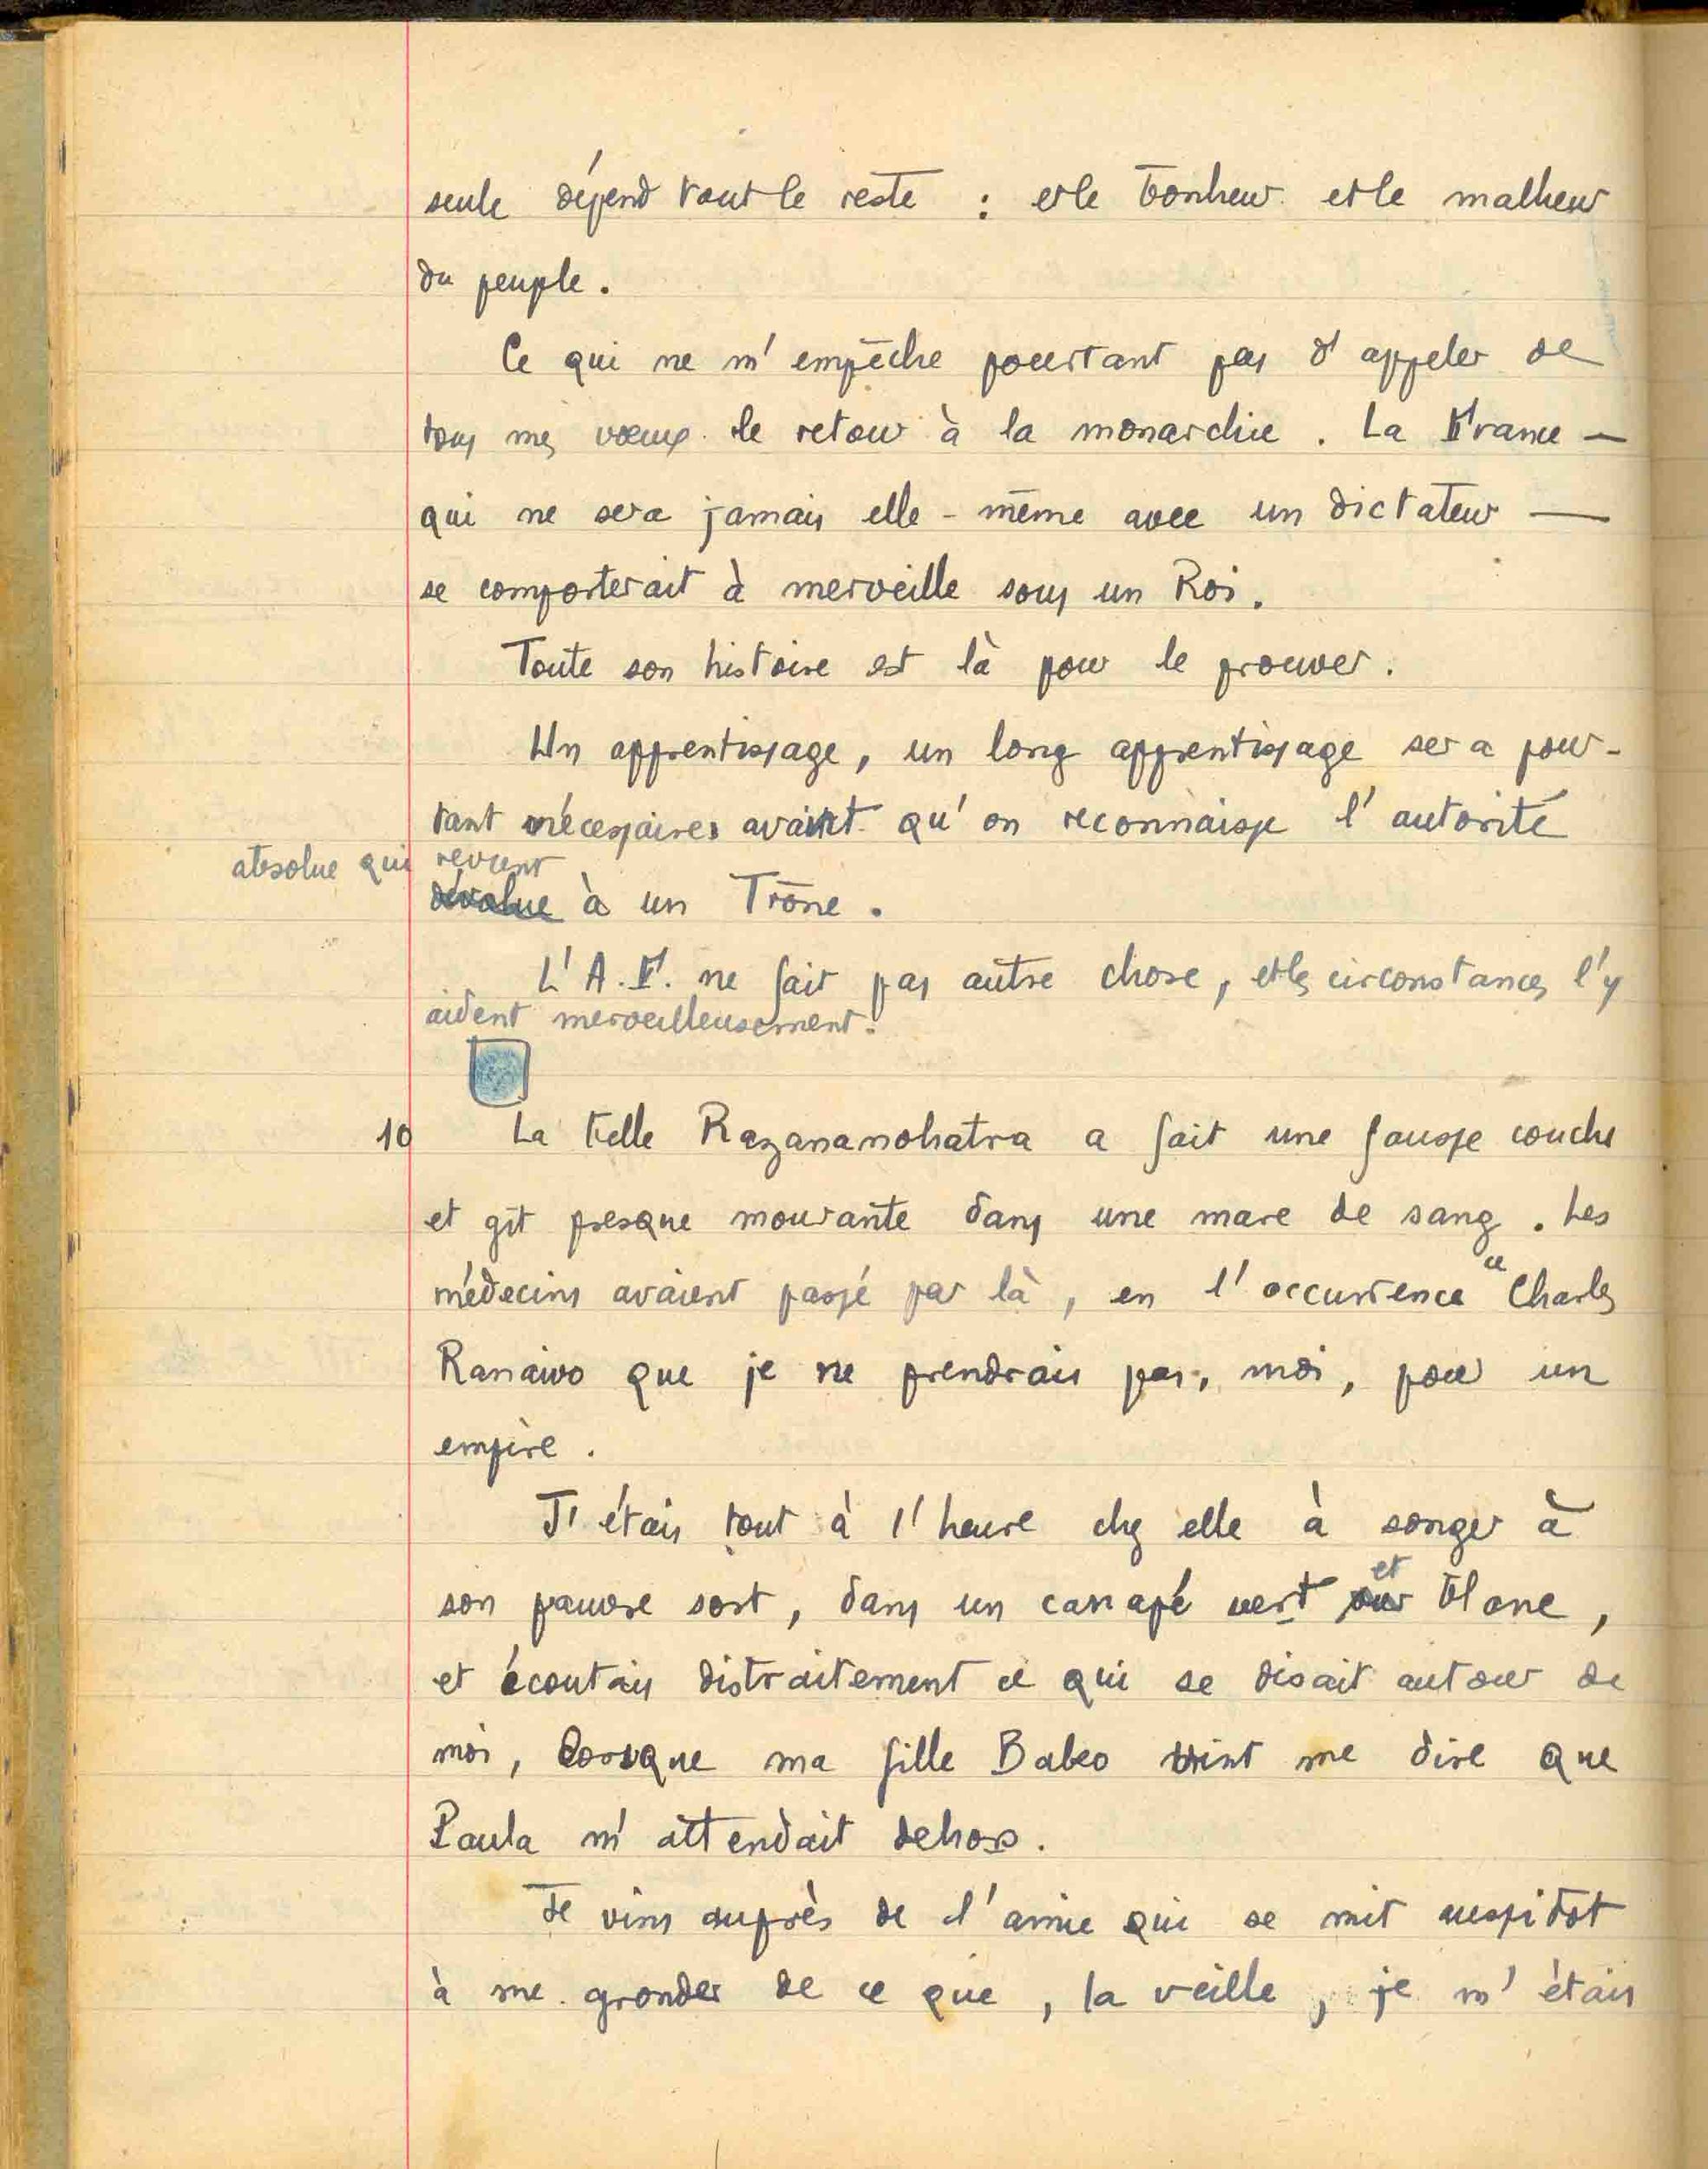 seule dépend tout le reste : et le bonheur et le malheur
du peuple.
Ce qui ne m'empêche pourtant pas d'appeler de
tous mes vœux le retour à la monarchie. La France —
qui ne sera jamais elle-même avec un dictateur —
se comporterait à merveille sous un Roi.
Toute son histoire est là pour le prouver.
Un apprentissage, un long apprentissage sera pour-
tant nécessaire avant qu'on reconnaisse l'autorité
absolue qui revient
dévolue à un Trône.
L'A.F. ne fait pas autre chose, et les circonstances l'y
aident merveilleusement.
10 La belle Razanamohatra a fait une fausse couche
et gît presque mourante dans une mare de sang. Les
médecins avaient passé par là, en l'occurrence ce Charles
Ranaivo que je ne prendrais pas, moi, pour un
empire.
J'étais tout à l'heure chez elle à songer à
son pauvre sort, dans un canapé vert et blanc,
et écoutais distraitement ce qui se disait autour de
moi, lorsque ma fille Babeo vint me dire que
Paula m'attendait dehors.
Je vins auprès de l'amie qui se mit aussitôt
à me gronder de ce que, la veille, je m'étais